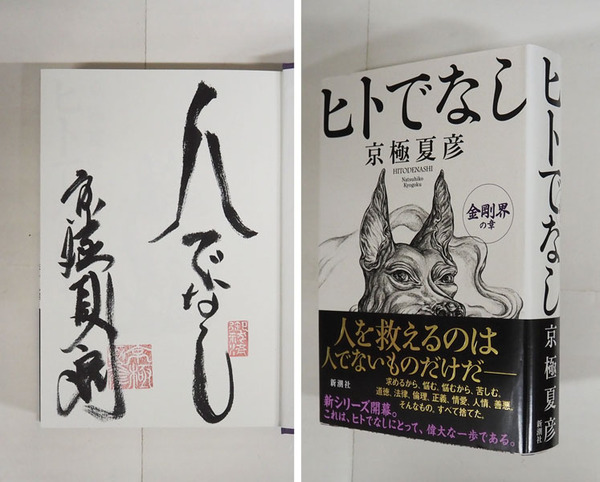 人でなし
京極夏彦
ヒトでなし
京極夏彦
HITODENASHI
Natsuhiko
Kyogoku
金剛界
の章
人を救えるのは
人でないものだけだ——
求めるから、悩む。悩むから、苦しむ。
道徳、法律、倫理、正義、情愛、人情、善悪。
そんなもの、すべて捨てた。
新潮社
新シリーズ開幕。
これは、ヒトでなしにとって、偉大な一歩である。
ヒトでなし
京極夏彦
新潮社